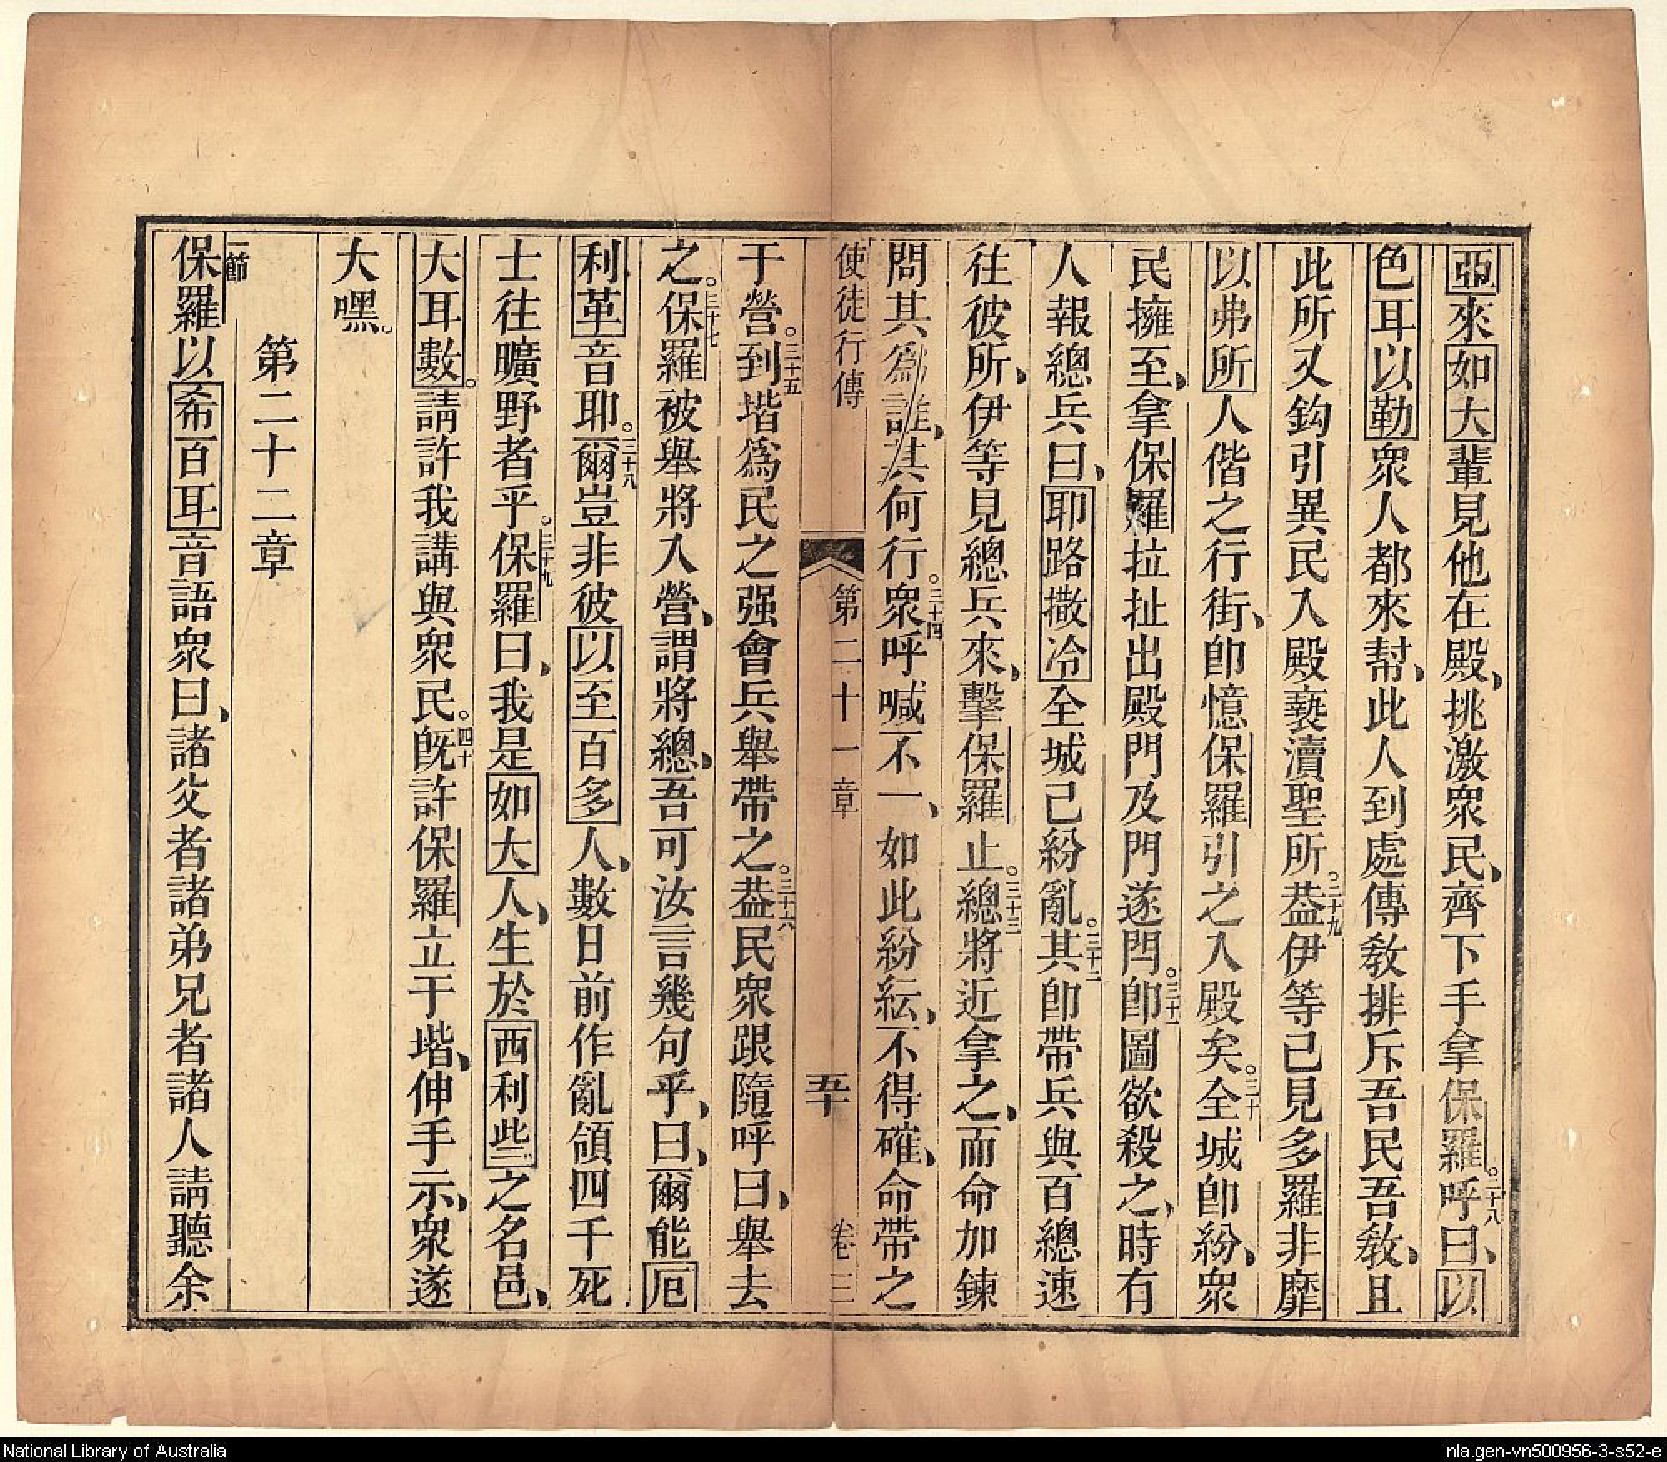 亞來如大輩見他在殿、挑激衆民、齊下手拿保羅。二十八呼曰、以
色耳以勒衆人都來幫、此人到處傳教排斥吾民吾教、且
此所又鈎引異民入殿褻瀆聖所。二十九葢伊等已見多羅非靡
以弗所人偕之行街、卽憶保羅引之入殿矣。三十全城卽紛、衆
民擁至、拿保羅拉扯出殿門及門遂閂。三十一卽圖欲殺之、時有
人報總兵曰、耶路撒冷全城已紛亂。三十二其卽帶兵與百總速
往彼所、伊等見總兵來、擊保羅止。三十三總將近拿之、而命加鍊
問其為誰、其何行。三十四衆呼喊不一、如此紛紜、不得確、命帶之
使徒行傳 第二十一章 五十 卷三
于營。三十五到堦爲民之强會兵舉帶之。三十六葢民衆跟隨呼曰、舉去
之。三十七保羅被舉將入營、謂將總、吾可汝言幾句乎、曰、爾能厄
利革音耶。三十八爾豈非彼以至百多人、數日前作亂領四千死
士往曠野者乎。三十九保羅曰、我是如大人、生於西利些之名邑、
大耳數。請許我講與衆民。四十旣許保羅立于堦、伸手示、衆遂
大嘿。
第二十二章
一節保羅以希百耳音語衆曰、諸父者諸弟兄者諸人請聽余
National Library of Australia
nla.gen-vn500956-3-s52-e